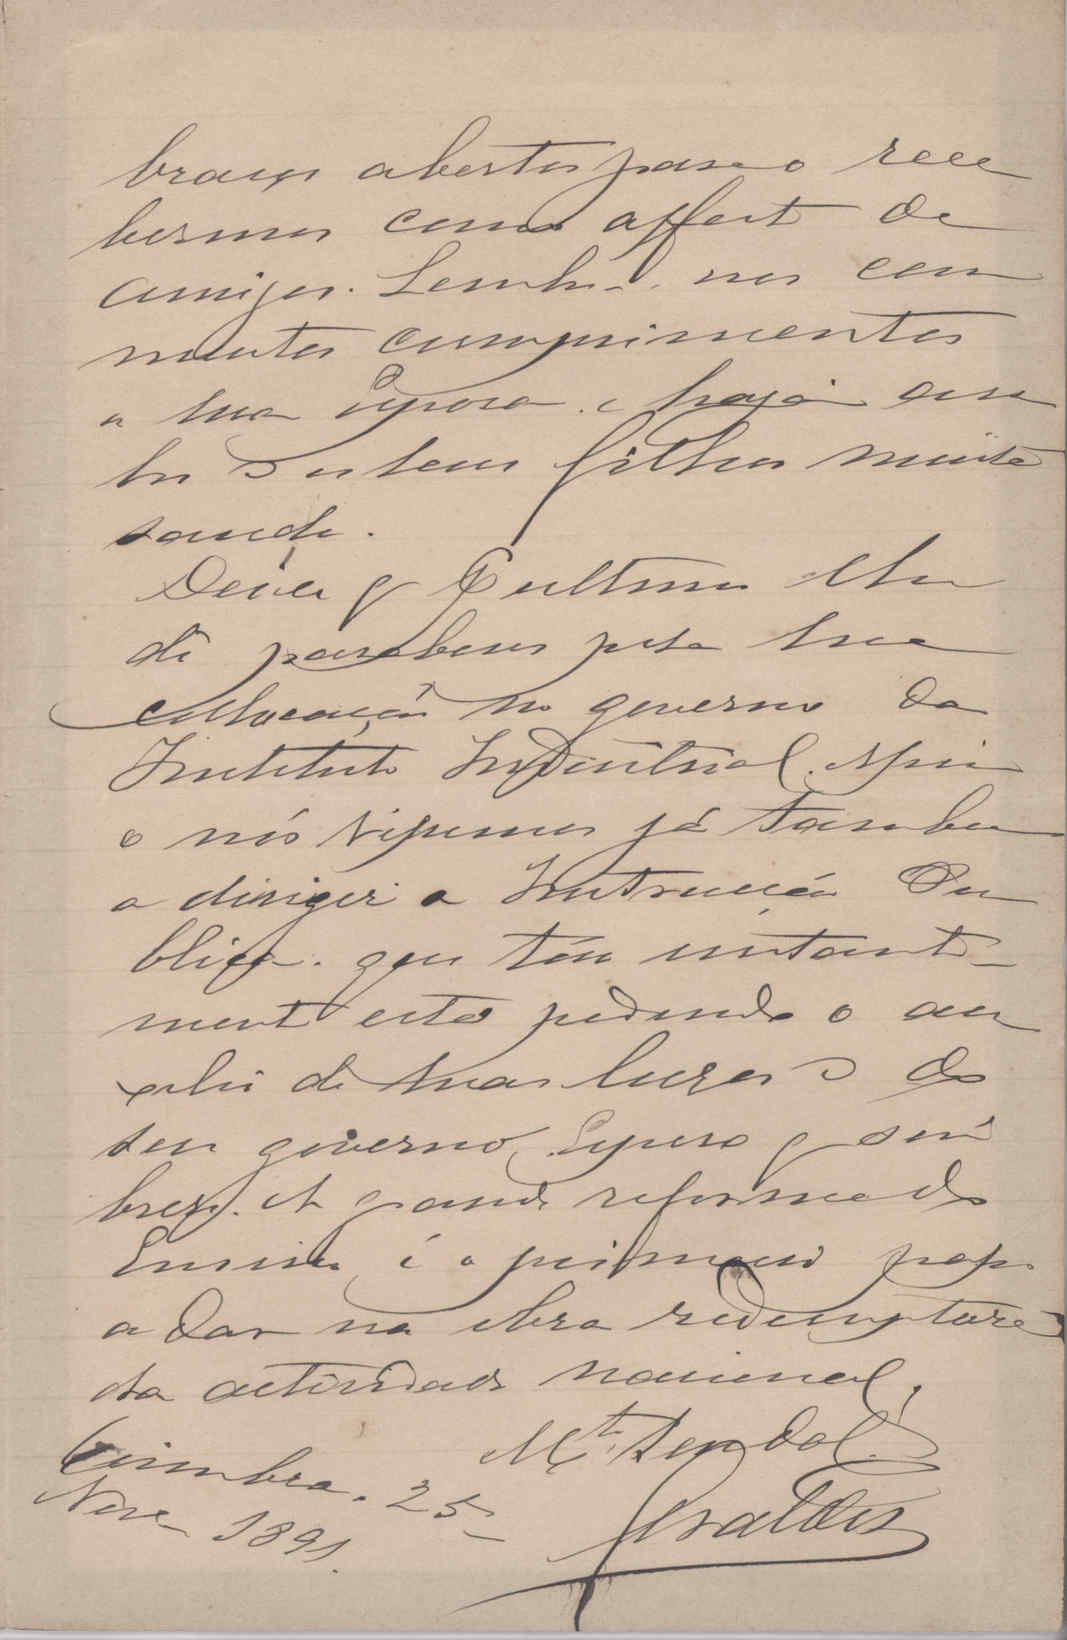 braços abertos para o rece
bermos como affect de
amigos. Lembra-nos com
muitos cumprimentos
a tua esposa e haja em
ti e os teus filhos muita
saude.
Deixa q ultimar
dê parabens pela tua
collocação no governo do
Instituto Industrial. Assim
o nós vissemos já tambem
a dirigir a Instrucção Pu
blica. que tão instante-
mente está pedindo o au
xilio de tuas luzes e do
teu governo. Espero q será
breve. A grande reforma do
Ensino é o primeiro passo
a dar na obra redemptora
da actividade nacional.
Mto teu do C.
Coimbra. 25
Nov. 1891.
Geraldes